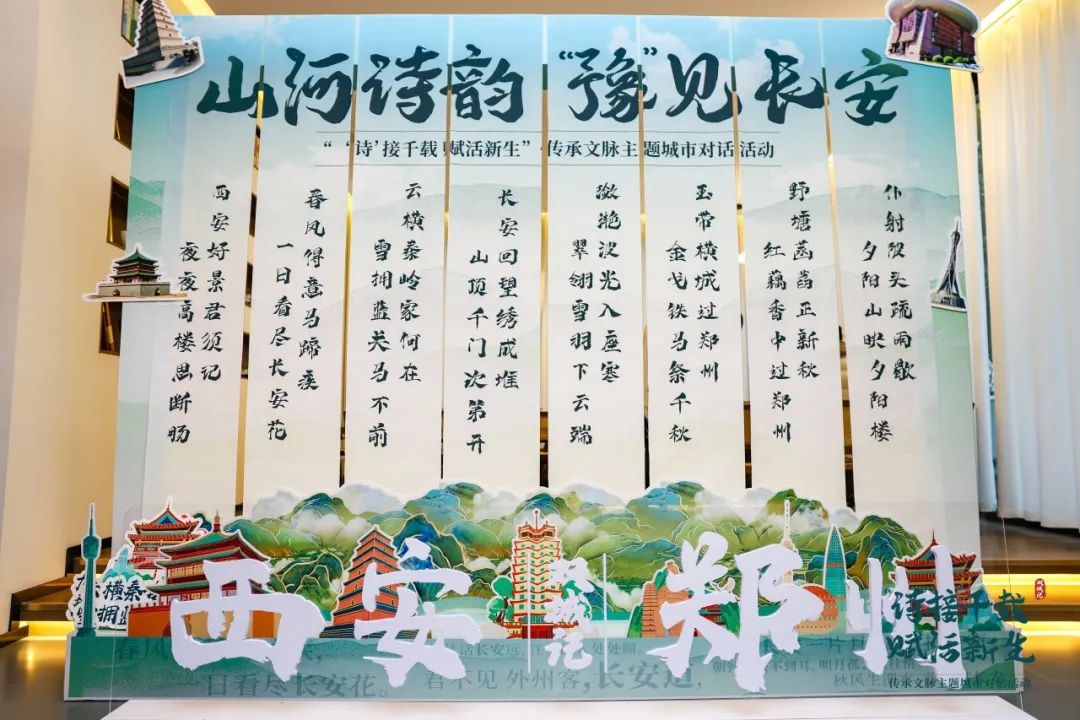 山河诗韵 “豫”见长安
“‘诗’接千载 赋活新生”·传承文脉主题城市对话活动
仆射陂头疏雨歇
夕阳山映夕阳楼
野塘菡萏正新秋
红藕香中过郑州
玉带横城过郑州
金戈铁马祭千秋
潋滟波光入座寒
翠翎雪羽下云端
长安回望绣成堆
山顶千门次第开
云横秦岭家何在
雪拥蓝关马不前
春风得意马蹄疾
一日看尽长安花
西安好景君须记
夜夜高楼思断肠
横秦
拥
西安 双城记 郑州
春风
日看尽长安花。
君不见外州客,长安道,
处处圆
秋风生
诗接千载
赋活新生
传承文脉主题城市对话活动